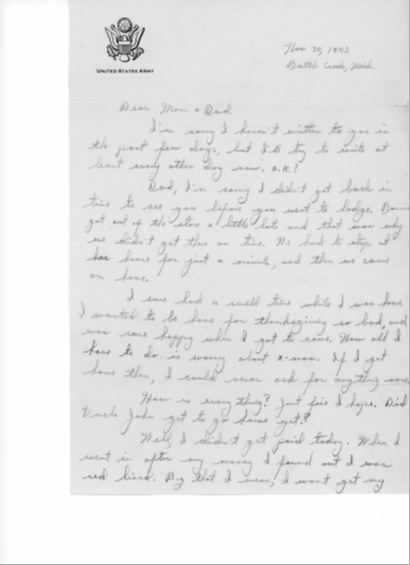 UNITED STATES ARMY
Nov 30, 1942
Battle Creek, Mich.
Dear Mom & Dad.
I'm sorry I haven't written to you in
the past few days, but I'll try to write at
least every other day now. O.K.?
Dad, I'm sorry I didn't get back in
time to see you before you went to lodge.
got out of the store a little late and that was why
we didn't get there on time. We had to stop at
her house for just a minute, and then we came
on home.
I sure had a swell time while I was home
I wanted to be home for thanksgiving so bad, and
was sure happy when I got to come. Now all I
have to do is worry about x-mas. If I get
home then, I could never ask for anything more
How is everything? Just fine I hope. Did
Uncle John get to go home yet?
Well, I didn't get paid today. When I
went in after my money I found out I was
red lined. By that I mean, I wont get my